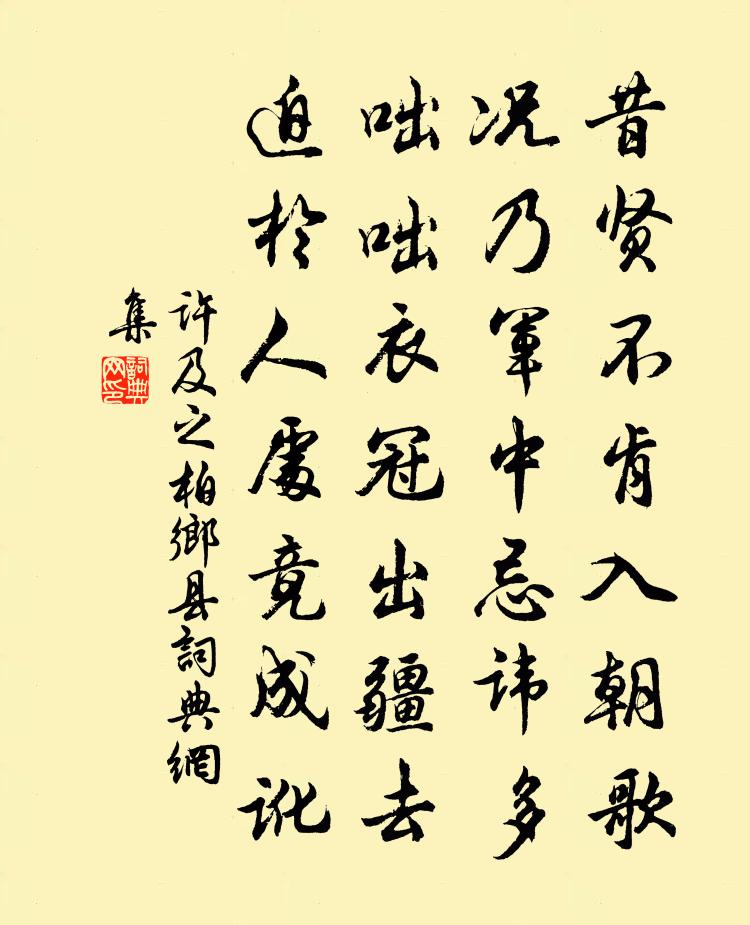 昔贤不肯入朝歌
况乃軍中忌讳多
咄咄衣冠出疆去
迫於人處竟成訛
許及之柏鄉县詞典網
集
詞典
网印